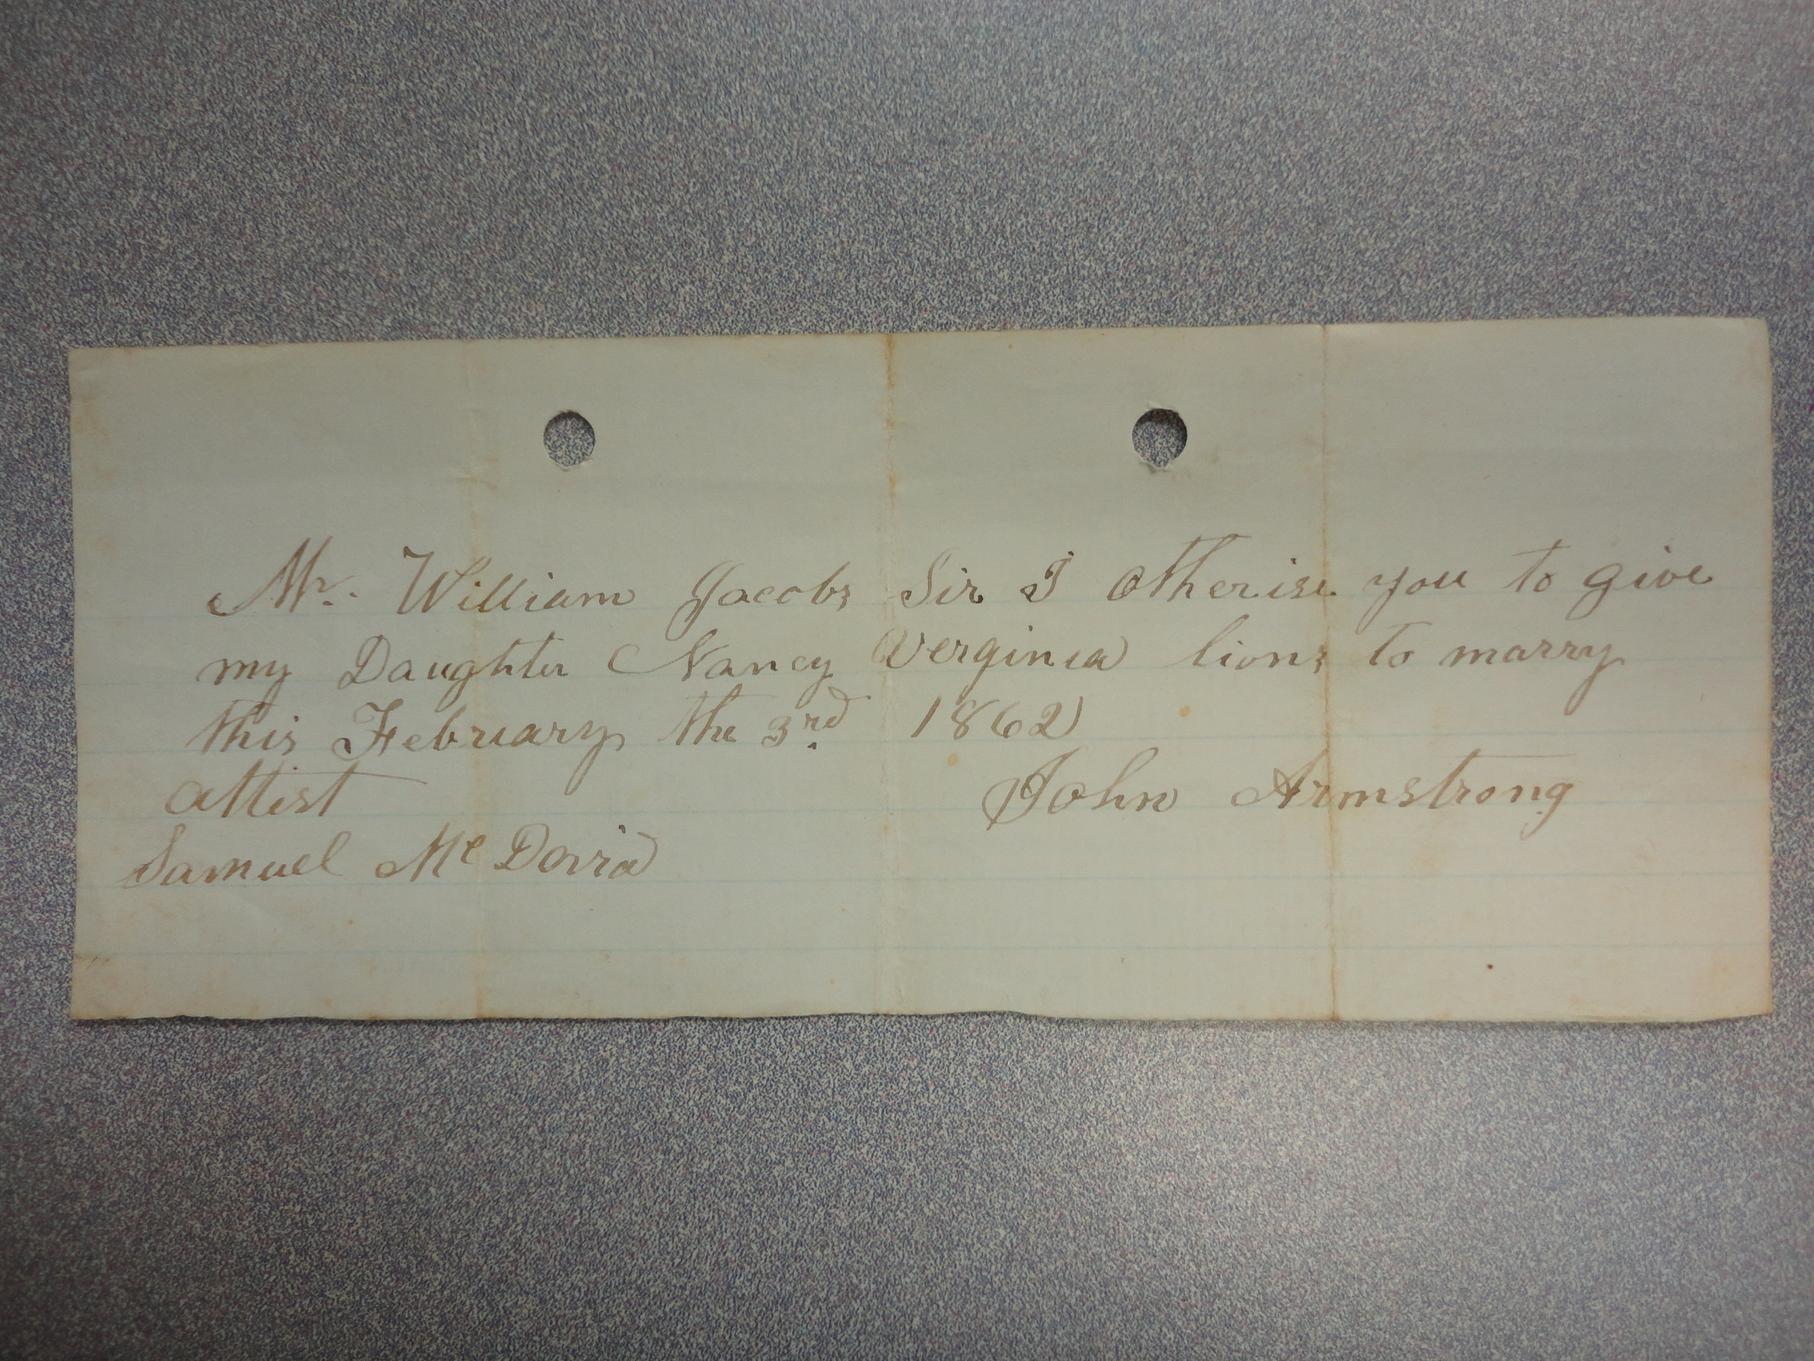 Mr. William Jacobs Sir I Otherise you to give
my Daughter Nancy Verginia lions to marry
this February the 3rd 1862
attest
John Armstrong
Samuel Mc David